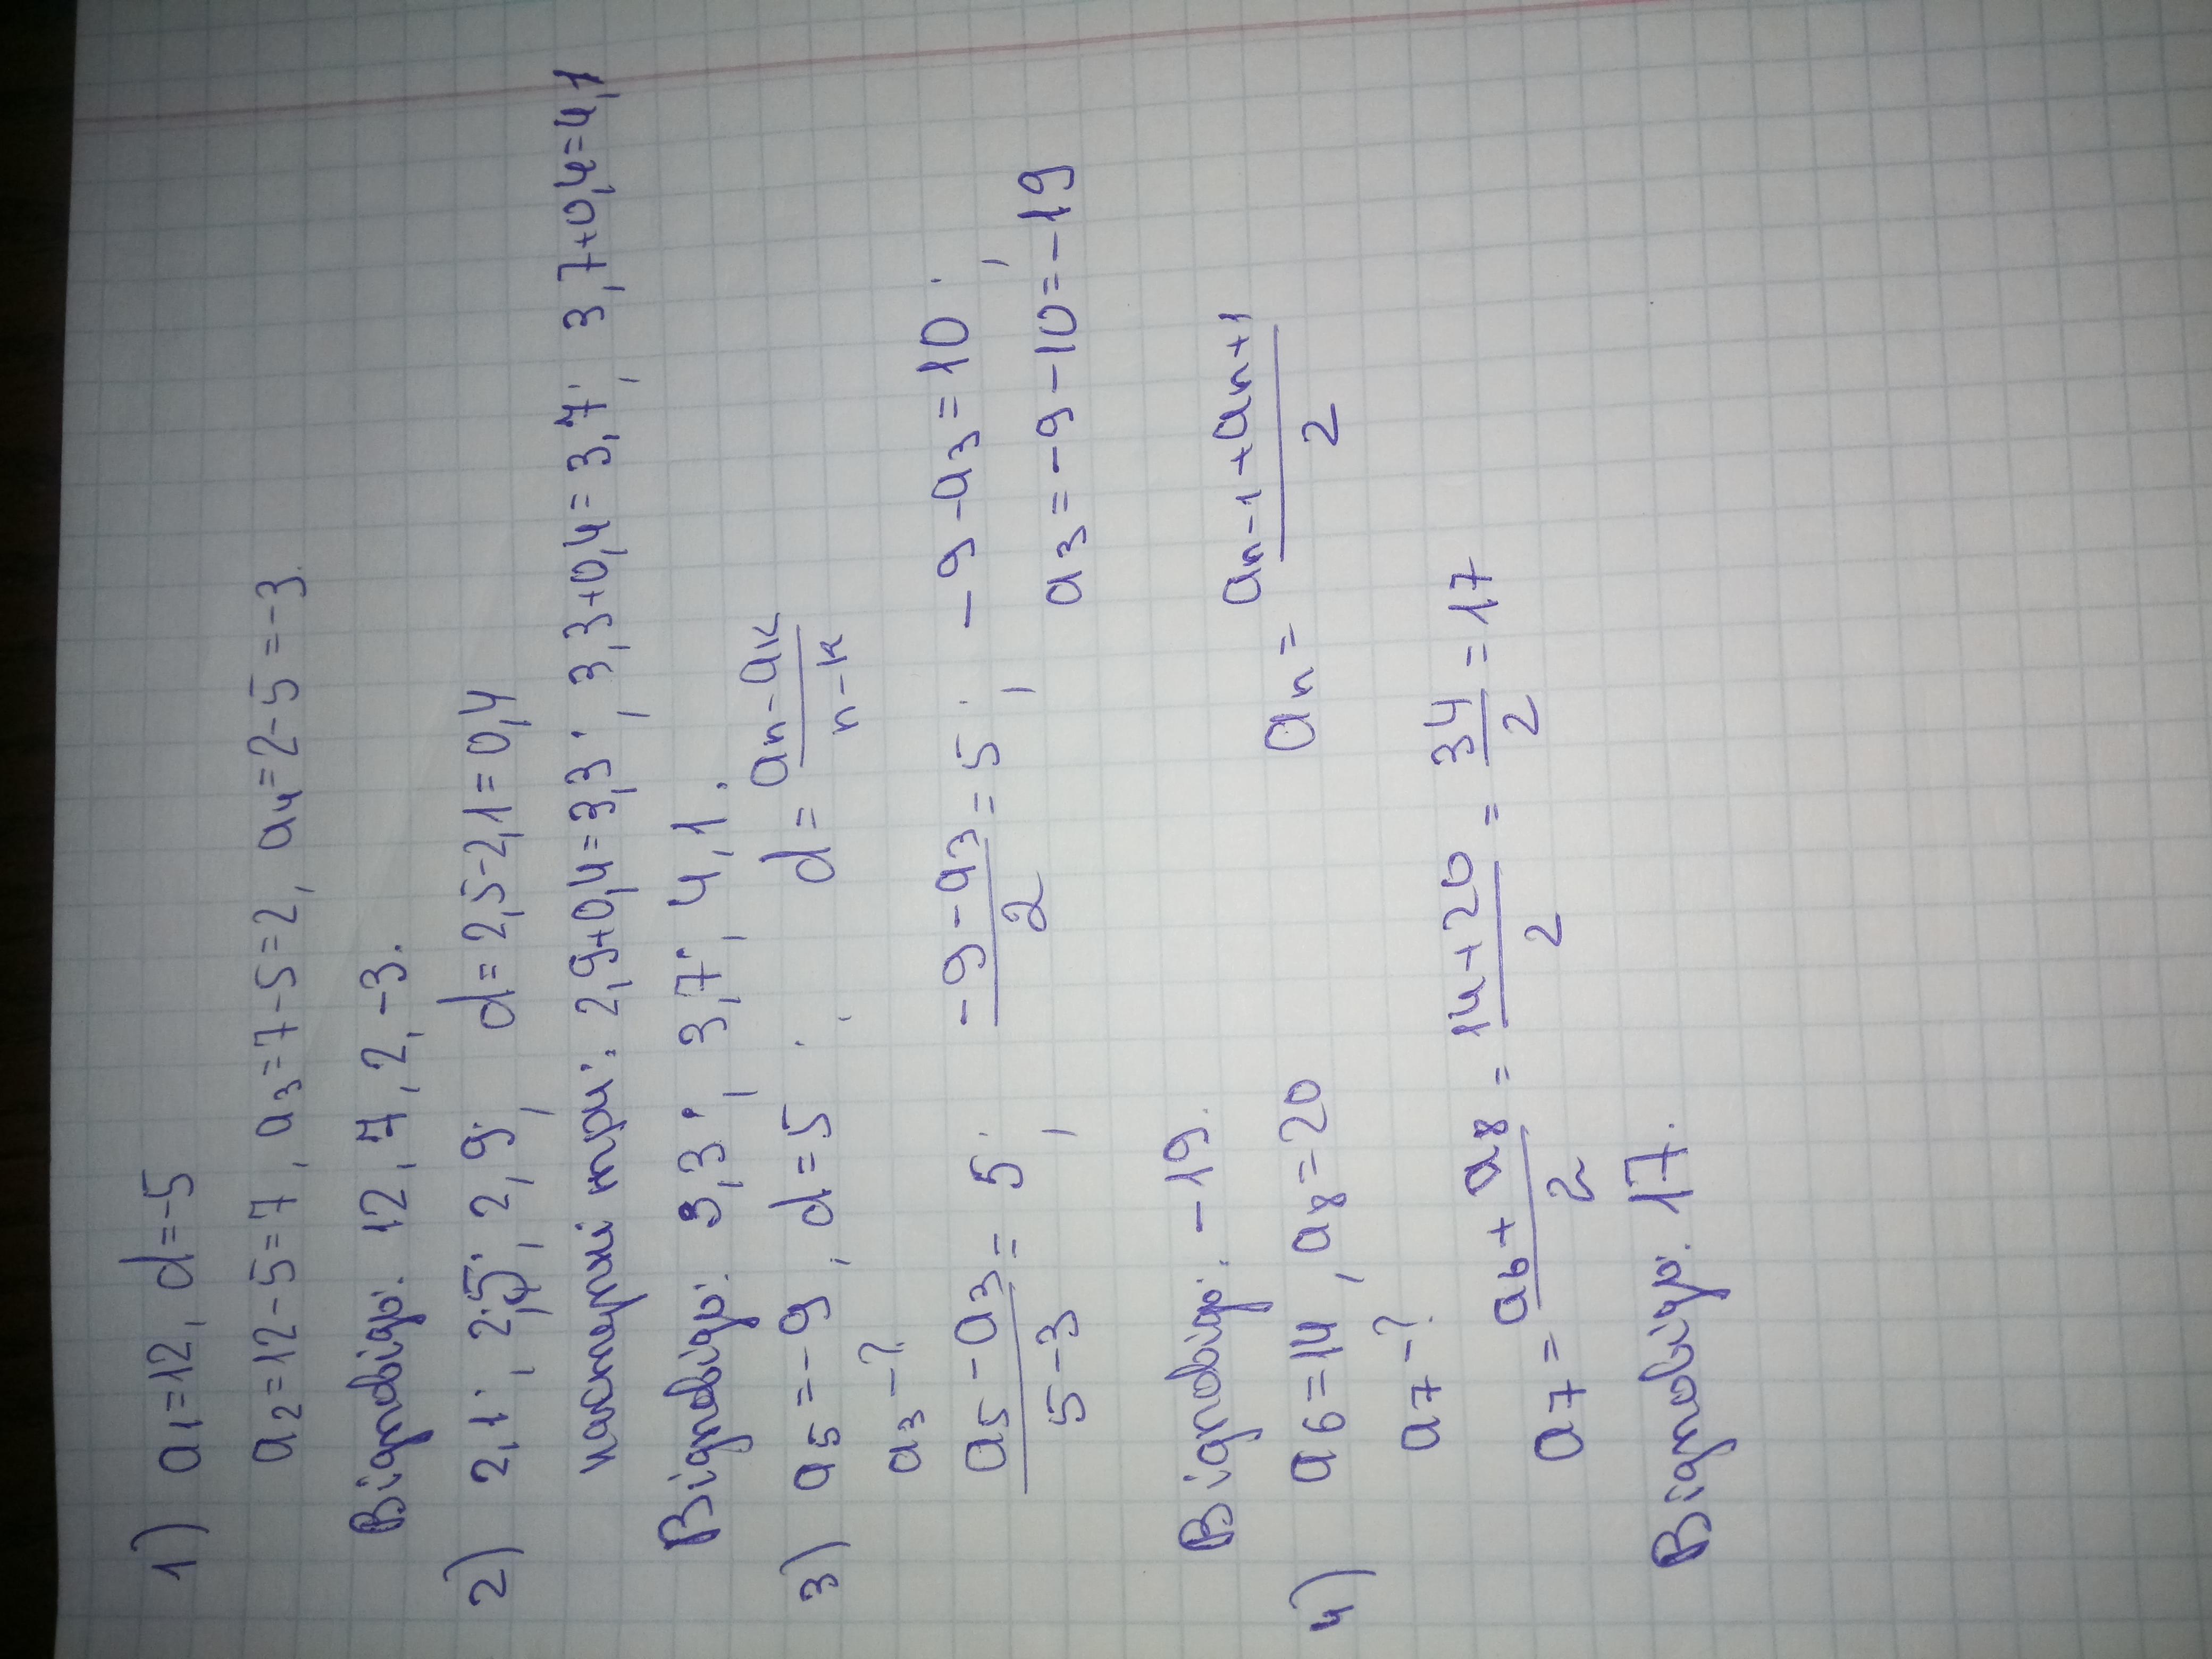 1) a₁=12, d=-5
a₂=12-5=7, a₃=7-5=2, a₄=2-5=-3.
Відповідь: 12, 7, 2, -3.
2) 2,1; 2,5; 2,9; d=2,5-2,1=0,4
наступні три: 2,9+0,4=3,3; 3,3+0,4=3,7; 3,7+0,4=4,1
Відповідь: 3,3; 3,7; 4,1.
3) a₅=-9, d=5; d=(aₙ-aₖ)/(n-k)
a₃-?
(a₅-a₃)/(5-3)=5; (-9-a₃)/2=5; -9-a₃=10;
a₃=-9-10=-19
Відповідь: -19.
4) a₆=14, a₈=20 aₙ=(aₙ₋₁+aₙ₊₁)/2
a₇-?
a₇=(a₆+a₈)/2=(14+20)/2=34/2=17
Відповідь: 17.